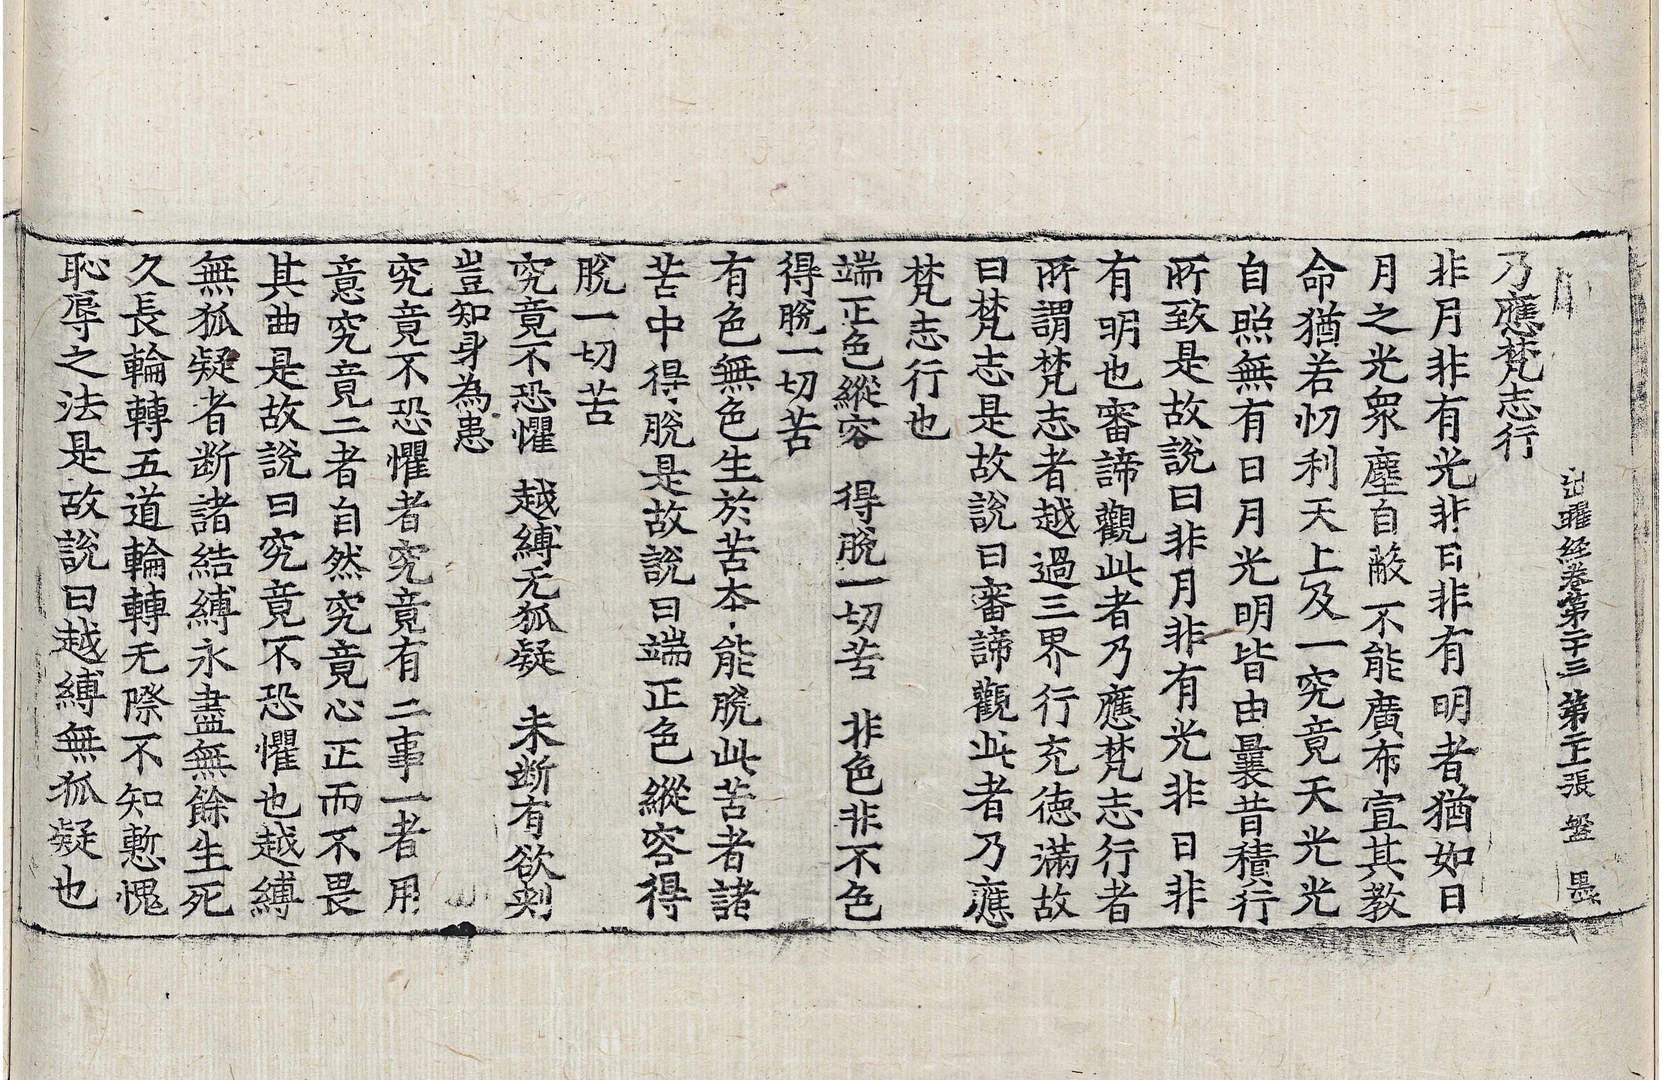 出曜經卷第二十三 第二十張 盤 
乃應梵志行
非月非有光非日非有明者猶如日
月之光衆塵自蔽不能廣布宣其教
命猶若忉利天上及一究竟天光光
自照無有日月光明皆由曩昔積行
所致是故說曰非月非有光非日非
有明也審諦觀此者乃應梵志行者
所謂梵志者越過三界行充德滿故
曰梵志是故說曰審諦觀此者乃應
梵志行也
端正色縱容 得脫一切苦 非色非不色
得脫一切苦
有色無色生於苦本能脫此苦者諸
苦中得脫是故說曰端正色縱容得
脫一切苦
究竟不恐懼 越縛无狐疑 未断有欲刺
豈知身為患
究竟不恐懼者究竟有二事一者用
意究竟二者自然究竟心正而不畏
其曲是故說曰究竟不恐懼也越縛
無狐疑者断諸結縛永盡無餘生死
久長輪轉五道輪轉无際不知慙愧
恥辱之法是故說曰越縛無狐疑也